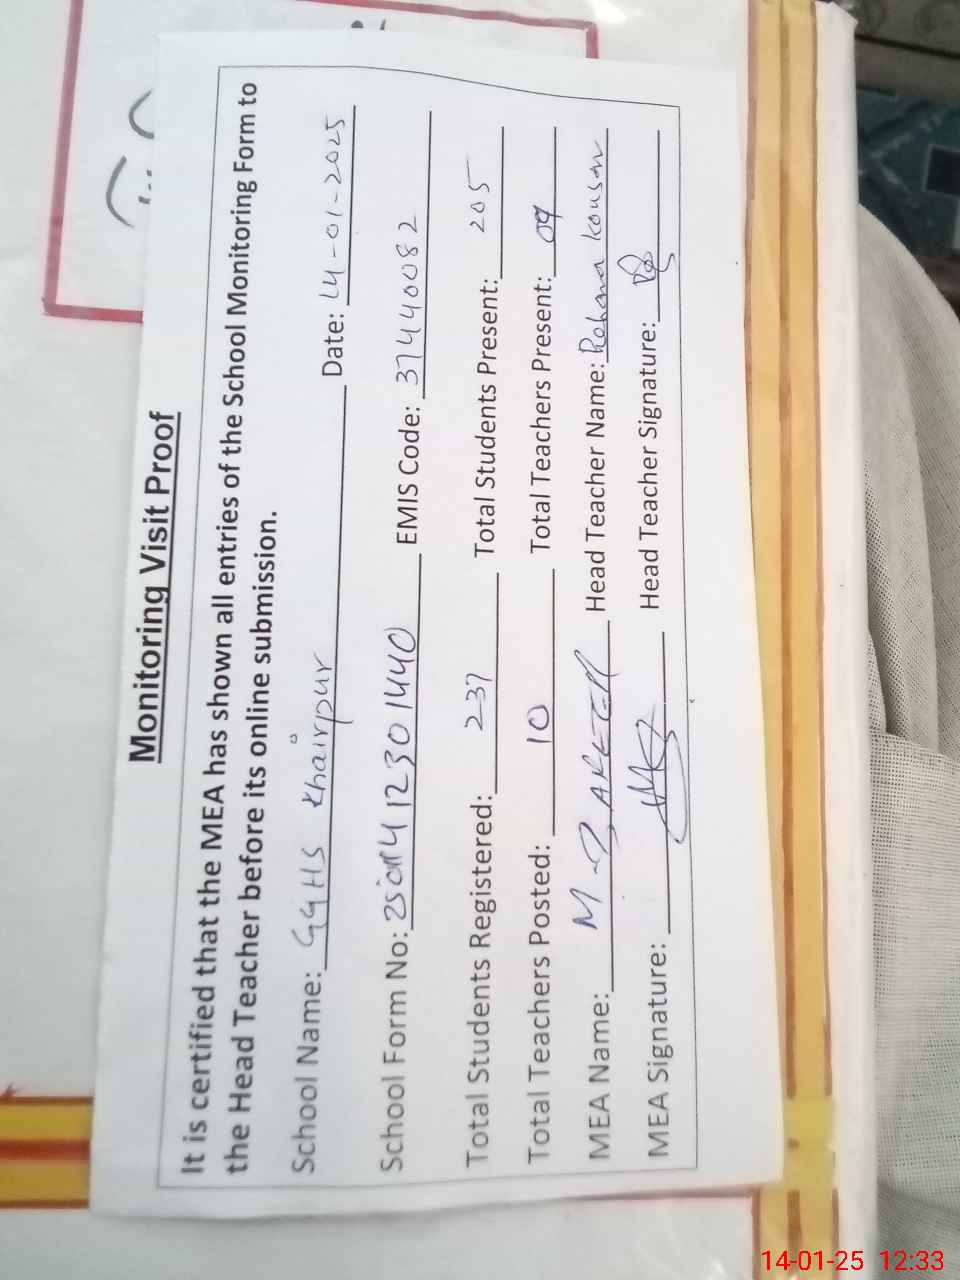 Monitoring Visit Proof
It is certified that the MEA has shown all entries of the School Monitoring Form to
the Head Teacher before its online submission.
School Name: GGHS Khairpur Date: 14-01-2025
School Form No: EMIS Code: 37440082
Total Students Registered: 237 Total Students Present: 205
Total Teachers Posted: 10 Total Teachers Present: 09
MEA Name: M Head Teacher Name: Rehana Kousar
MEA Signature: Head Teacher Signature:
14-01-25 12:33